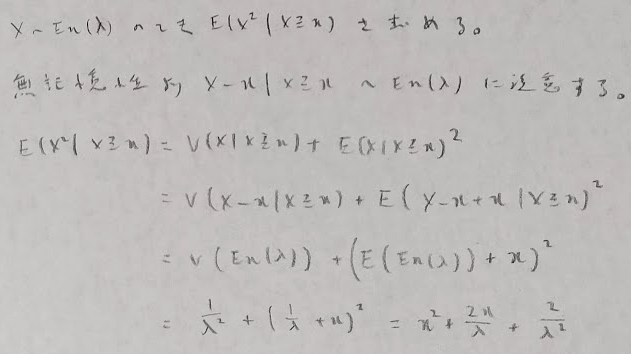 X ~ En(λ) のとき E(X² | X ≧ x) を求める。
無記憶性より X-x | X ≧ x ~ En(λ) に注意する。
E(X² | X ≧ x) = V(X | X ≧ x) + E(X | X ≧ x)²
= V(X-x | X ≧ x) + E(X-x+x | X ≧ x)²
= V(En(λ)) + (E(En(λ)) + x)²
= 1/λ² + (1/λ + x)² = x² + 2x/λ + 2/λ²